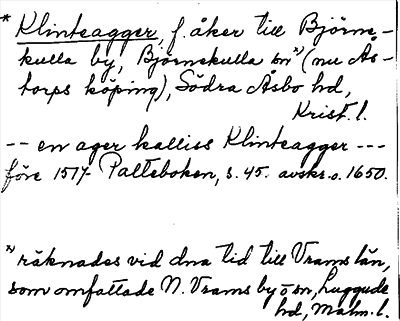 * Klinteagger, f. åker till Björne-
kulla by, Björnekulla sn *) (nu Ås-
torps köping), Södra Åsbo hd,
Krist. l.
-- en ager kalliss Klinteagger ---
före 1517 Palteboken, s. 45. avskr. o. 1650.
*) räknades vid dna tid till Vrams län,
som omfattade N. Vrams by o sn, Luggude
hd, Malm. l.